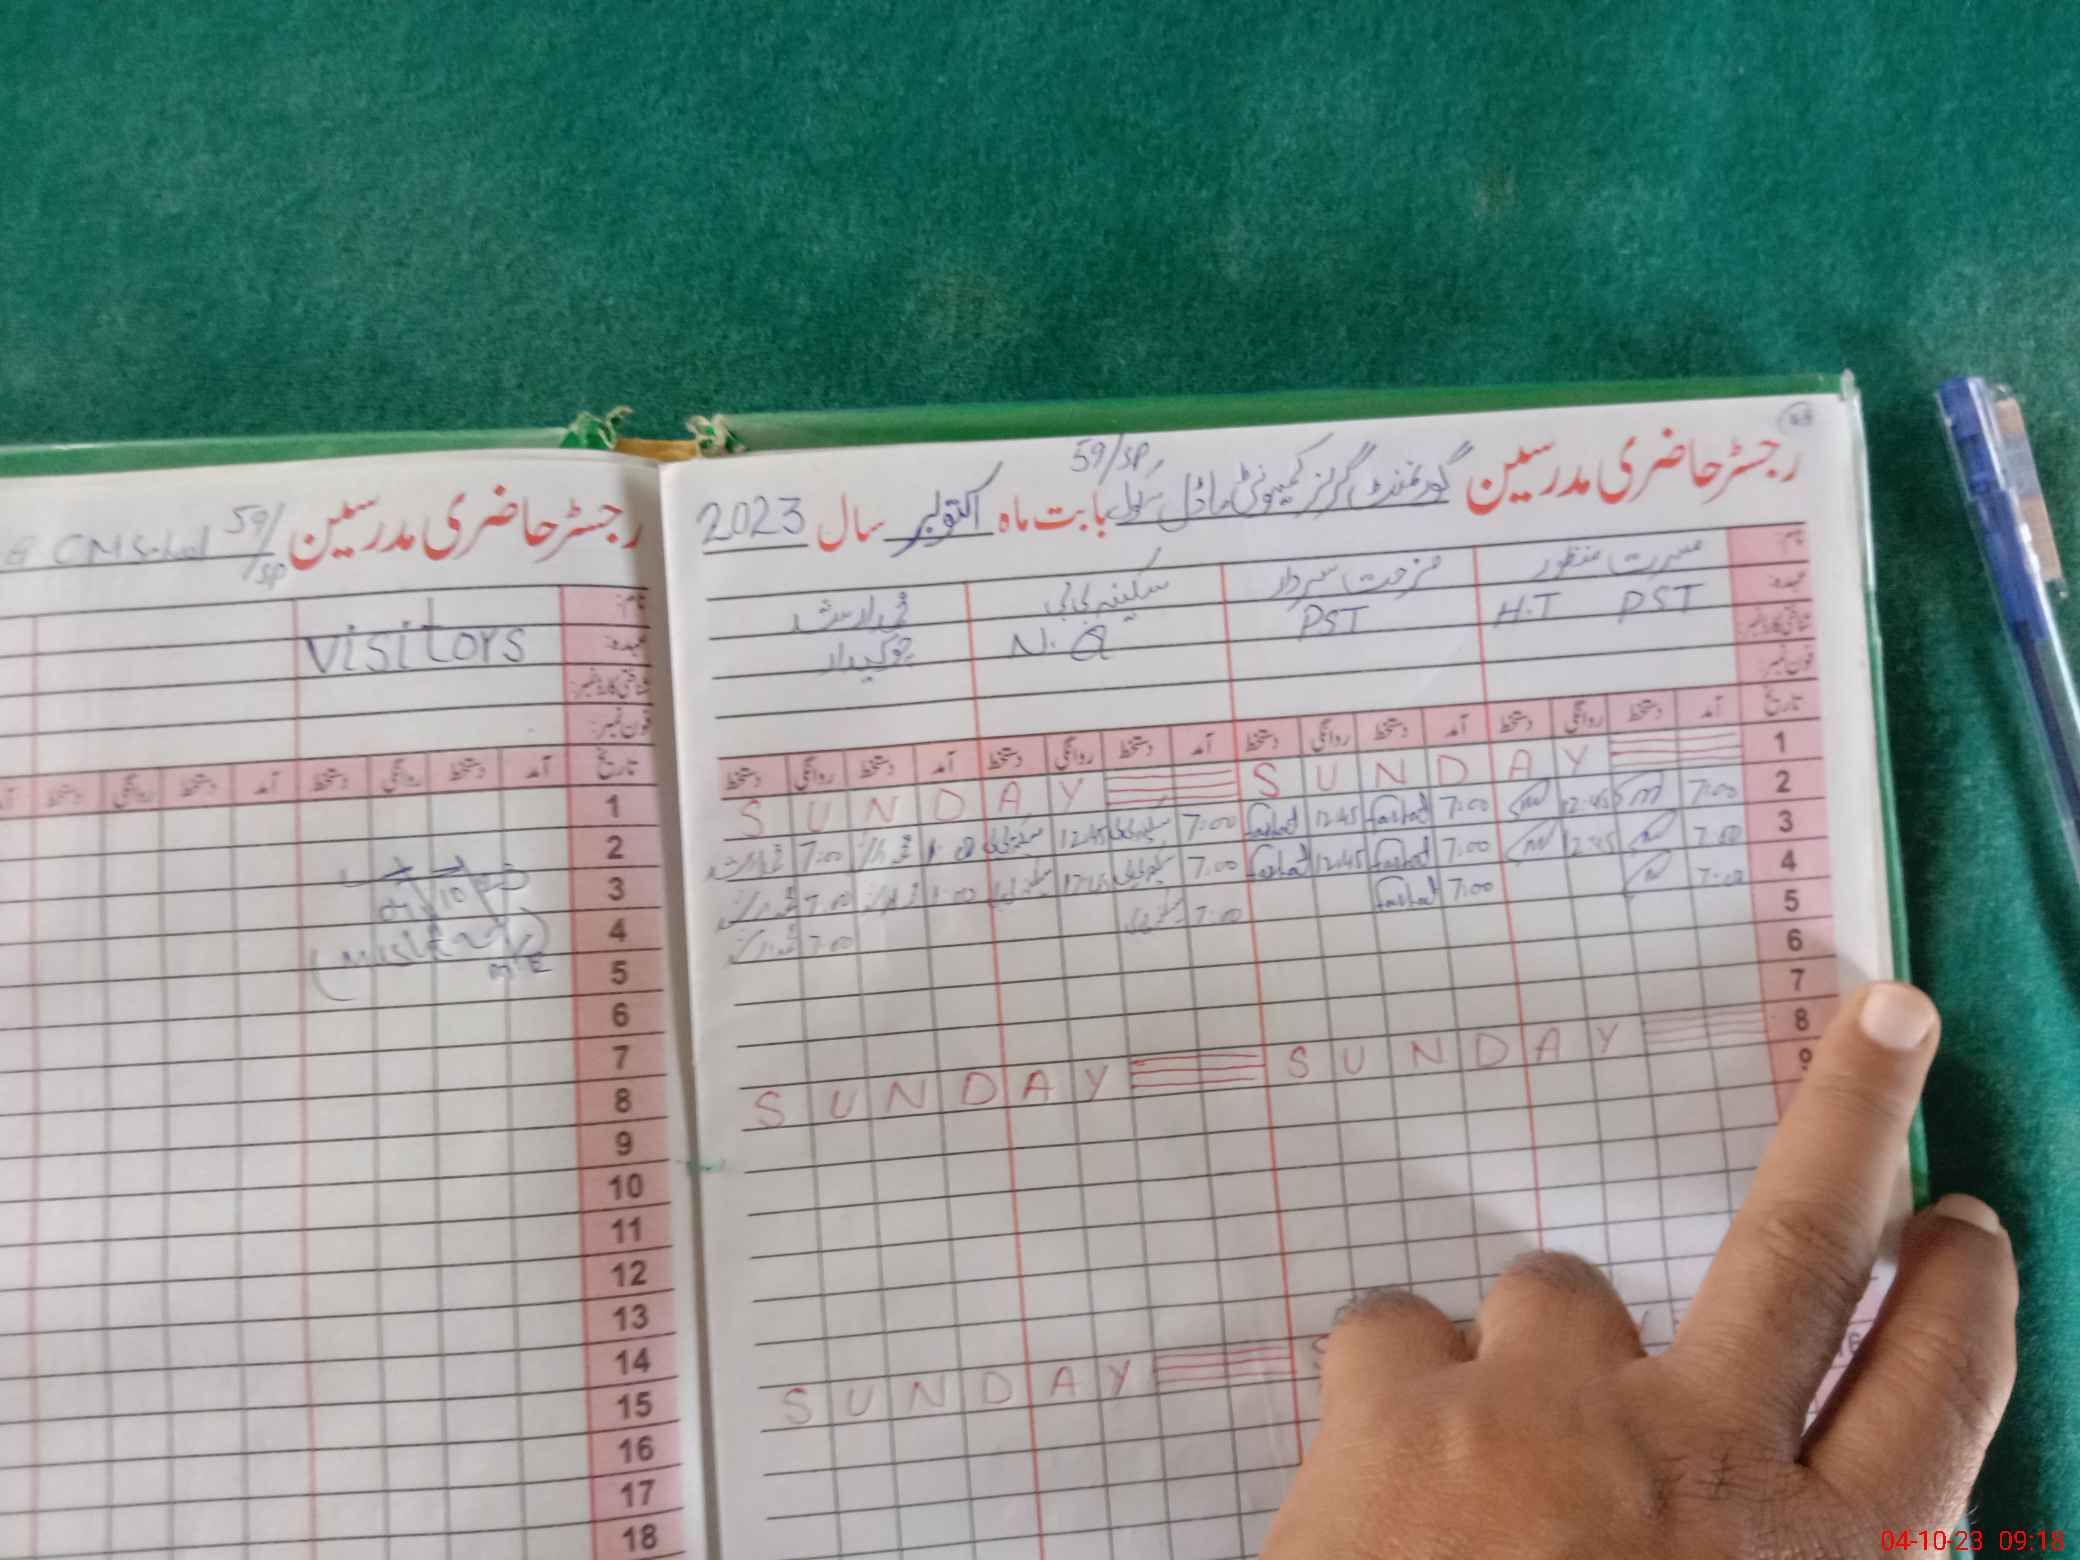 رجسٹر حاضری مدرسین گورنمنٹ گرلز کمیونٹی ماڈل سکول 59/SP بابت ماہ اکتوبر سال 2023
نام: مسرت منظور فرحت سردار سکینہ بی بی
عہدہ: H.T PST PST N.Q چوکیدار
شناختی کارڈ نمبر:
فون نمبر:
تاریخ آمد دستخط روانگی دستخط آمد دستخط روانگی دستخط آمد دستخط روانگی دستخط آمد دستخط روانگی دستخط
1 SUNDAY SUNDAY
2 7:00 12:45 7:00 Farhat 12:45 Farhat 7:00 سکینہ بی بی 12:45 سکینہ بی بی 1:00 7:00
3 7:00 12:45 7:00 Farhat 12:45 Farhat 7:00 سکینہ بی بی 12:45 سکینہ بی بی 1:00 7:00
4 7:00 7:00 Farhat 7:00 7:00
5
6
7
8 SUNDAY SUNDAY
9
SUNDAY S
رجسٹر حاضری مدرسین 59/SP
نام:
عہدہ: visitors
شناختی کارڈ نمبر:
فون نمبر:
تاریخ آمد دستخط روانگی دستخط آمد دستخط روانگی دستخط
1
2
3 04 10
4
5
6
7
8
9
10
11
12
13
14
15
16
17
18
04-10-23 09:18